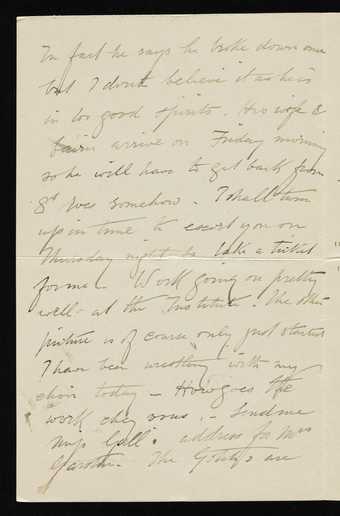 In fact he says he broke down once
but I don't believe it as he is
in too good spirits. His wife &
bairn arrive on Friday morning
so he will have to get back from
somehow. I shall turn
up in time to escort you on
Thursday night to take a ticket
for me. Work going on pretty
well at the Institute. The other
picture is of course only just started
I have been wrestling with my
choir today – How goes the
work chez vous. – Send me
Miss address for Mrs
The are